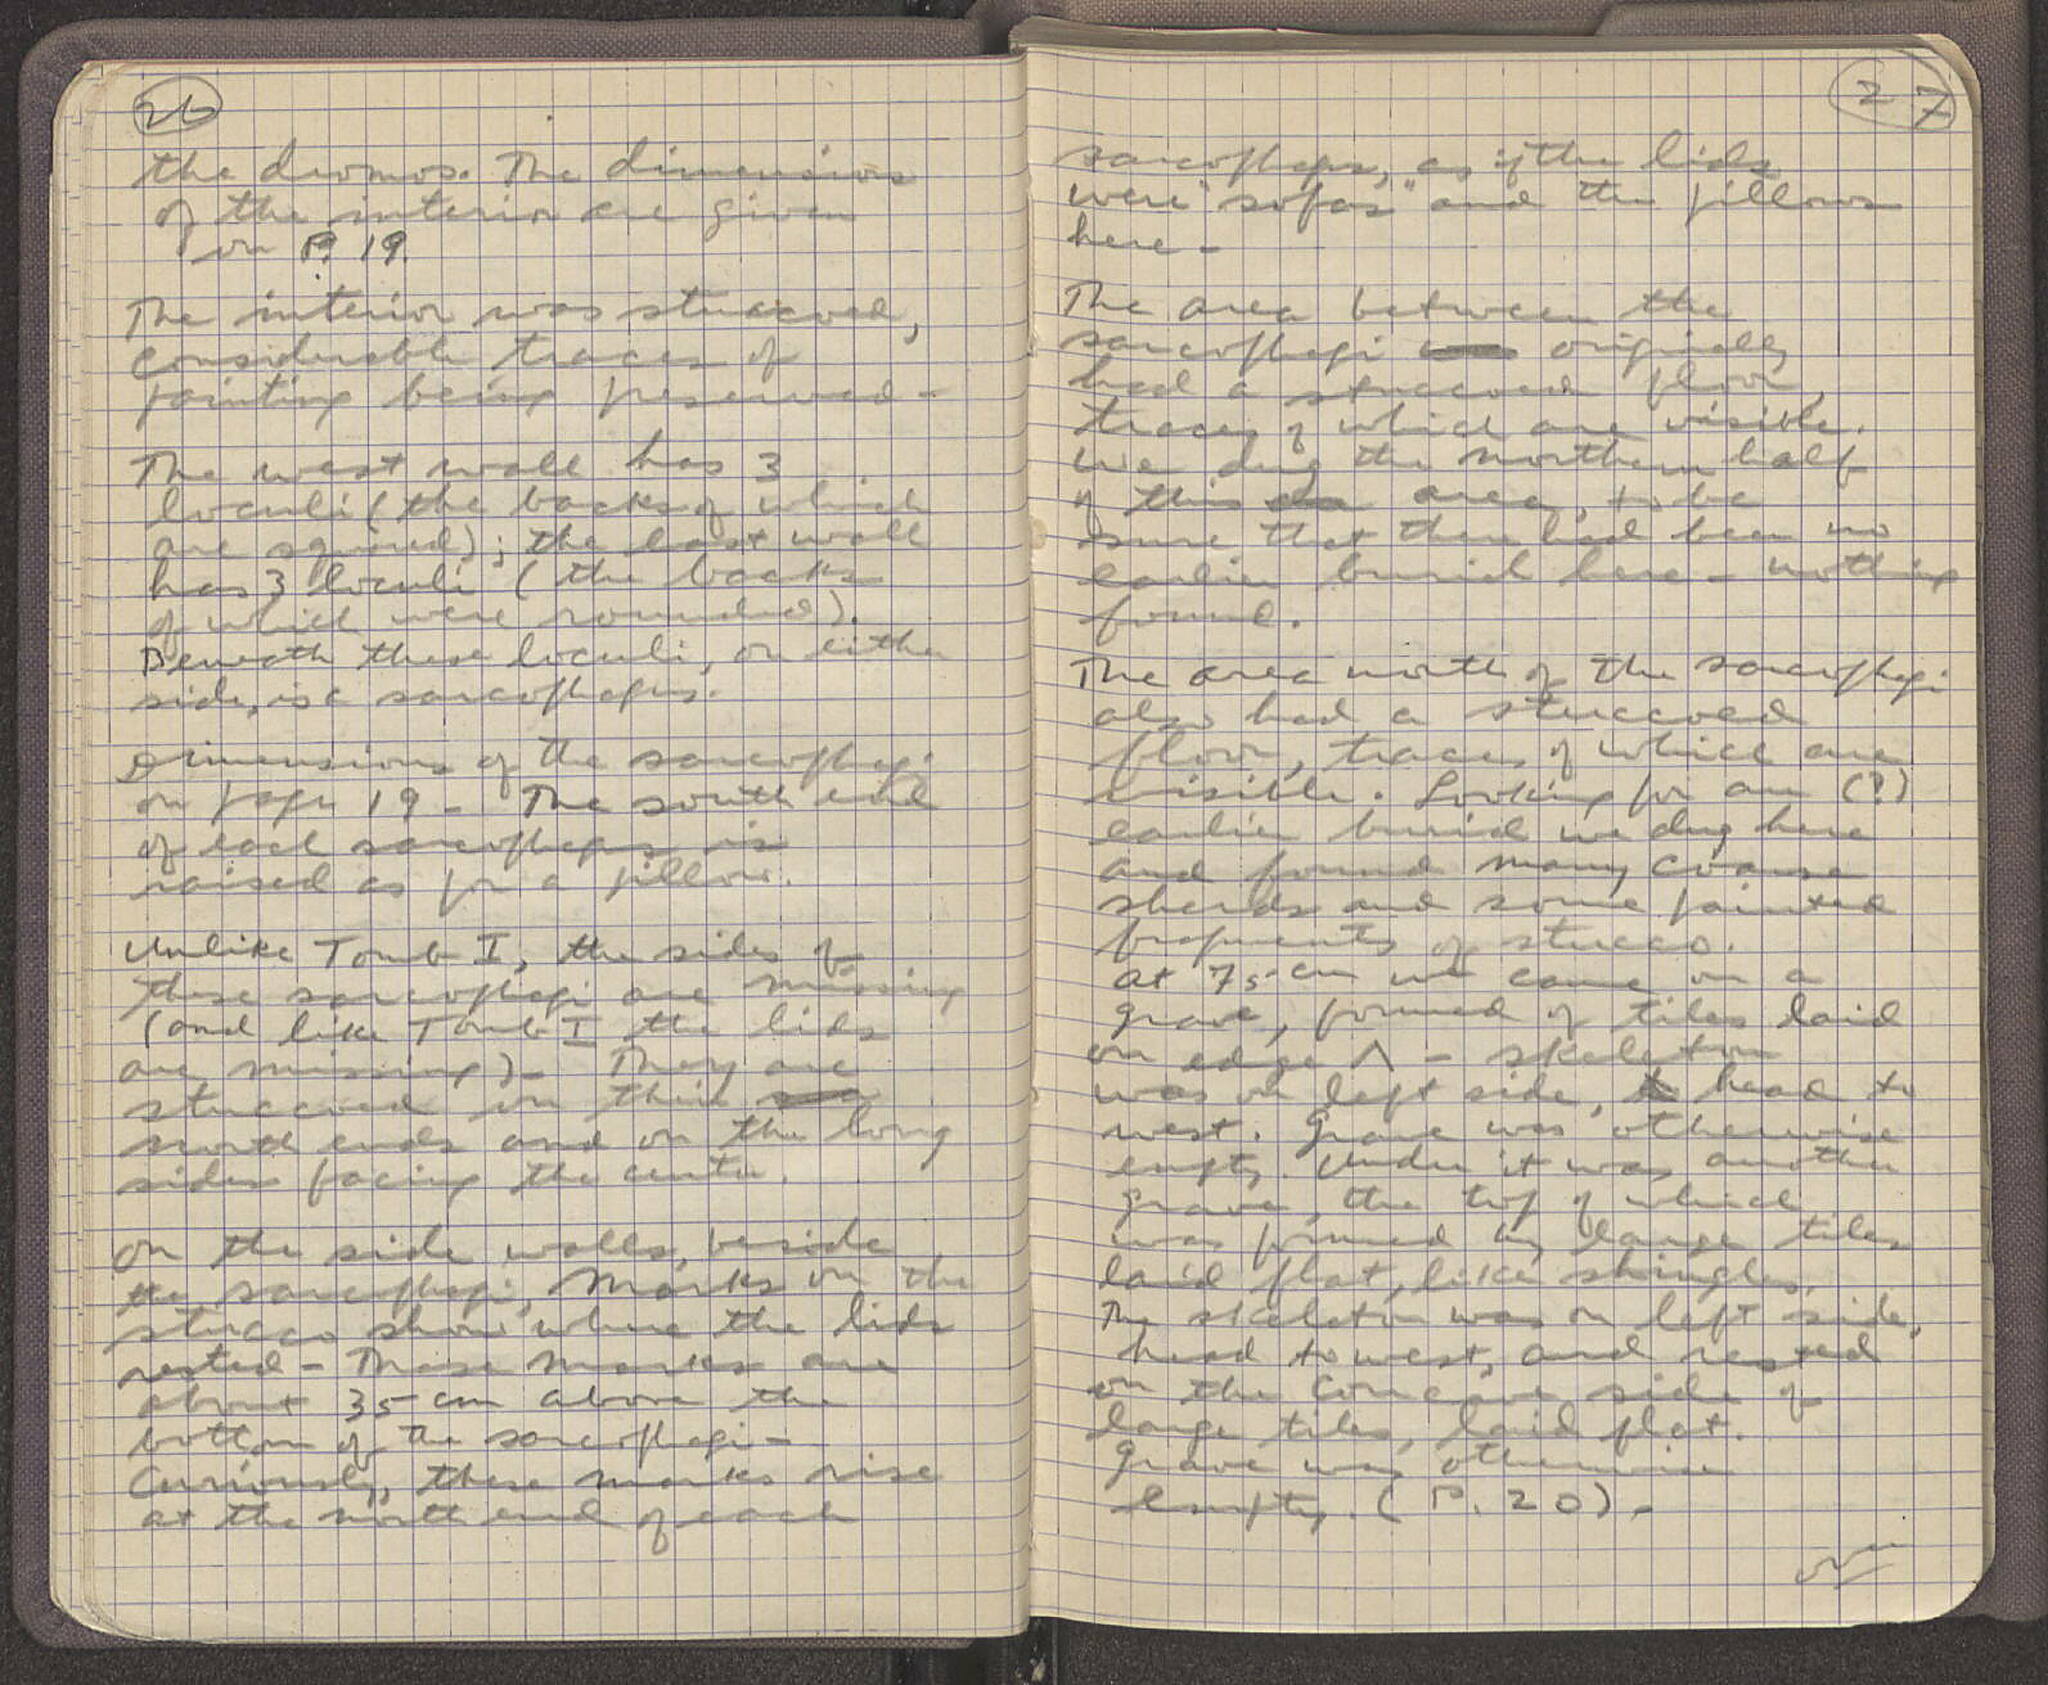 26
the dromos. The dimensions
of the interior are given
on P. 19.
The interior was stuccoed,
considerable traces of
painting being preserved -
The west wall has 3
loculi (the backs of which
are squared); the east wall
has 3 loculi (the backs
of which were rounded).
Beneath these loculi, on either
side, is a sarcophagus.
Dimensions of the sarcophagi
on page 19 - The south end
of each sarcophagus is
raised as for a pillow.
Unlike Tomb I, the sides of
these sarcophagi are missing
(and like Tomb I the lids
are missing) - They are
stuccoed on their
north ends and on the long
sides facing the center.
On the side walls, beside
the sarcophagi, marks on the
stucco show where the lids
rested - These marks are
about 35 cm above the
bottom of the sarcophagi -
Curiously, these marks rise
at the north end of each
27
sarcophagus, as if the lids
were "sofas" and the pillows
here -
The area between the
sarcophagi was originally
had a stuccoed floor,
traces of which are visible.
We dug the northern half
of this area, to be
sure that there had been no
earlier burial here - nothing
found.
The area north of the sarcophagi
also had a stuccoed
floor, traces of which are
visible. Looking for an (?)
earlier burial we dug here
and found many coarse
sherds and some painted
fragments of stucco.
At 75 cm we came on a
grave, formed of tiles laid
on edge ^ - skeleton
was on left side, head to
west. Grave was otherwise
empty. Under it was another
grave, the top of which
was formed by large tiles
laid flat, like shingles.
The skeleton was on left side,
head to west, and rested
on the concave side of
large tiles, laid flat.
Grave was otherwise
empty. (P. 20). -